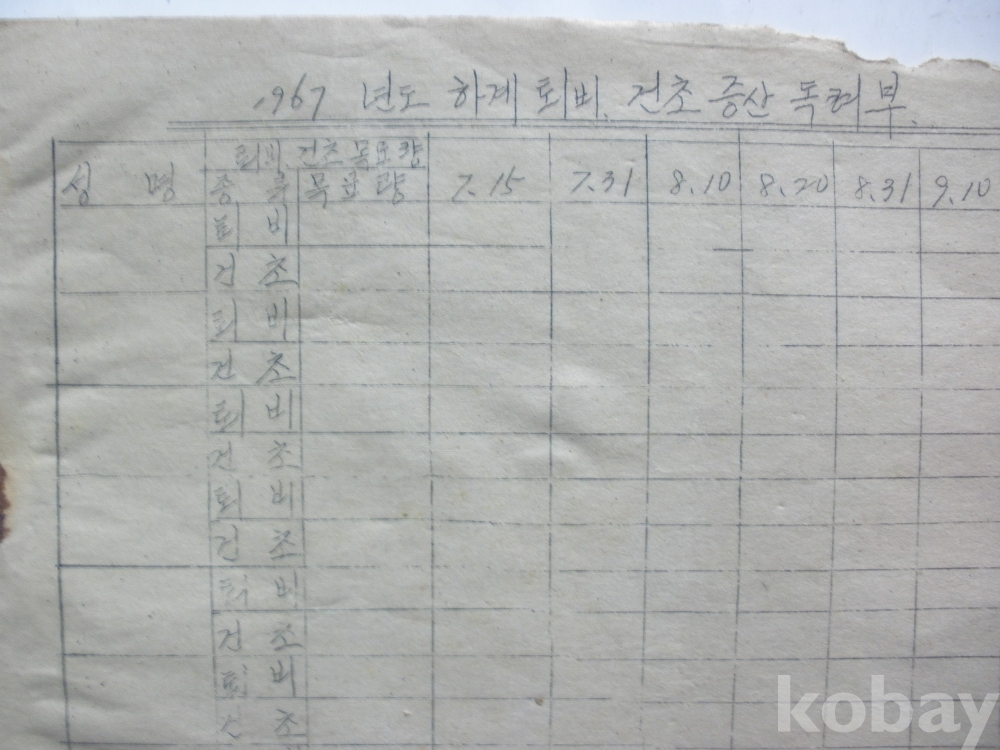 1967 년도 하계 퇴비. 건초 증산 독려부.
퇴비. 건초 목표량
성 명 종 목 목표량 7.15 7.31 8.10 8.20 8.31 9.10
퇴 비
건 초
퇴 비
건 초
퇴 비
건 초
퇴 비
건 초
퇴 비
건 초
퇴 비
건 초
kobay